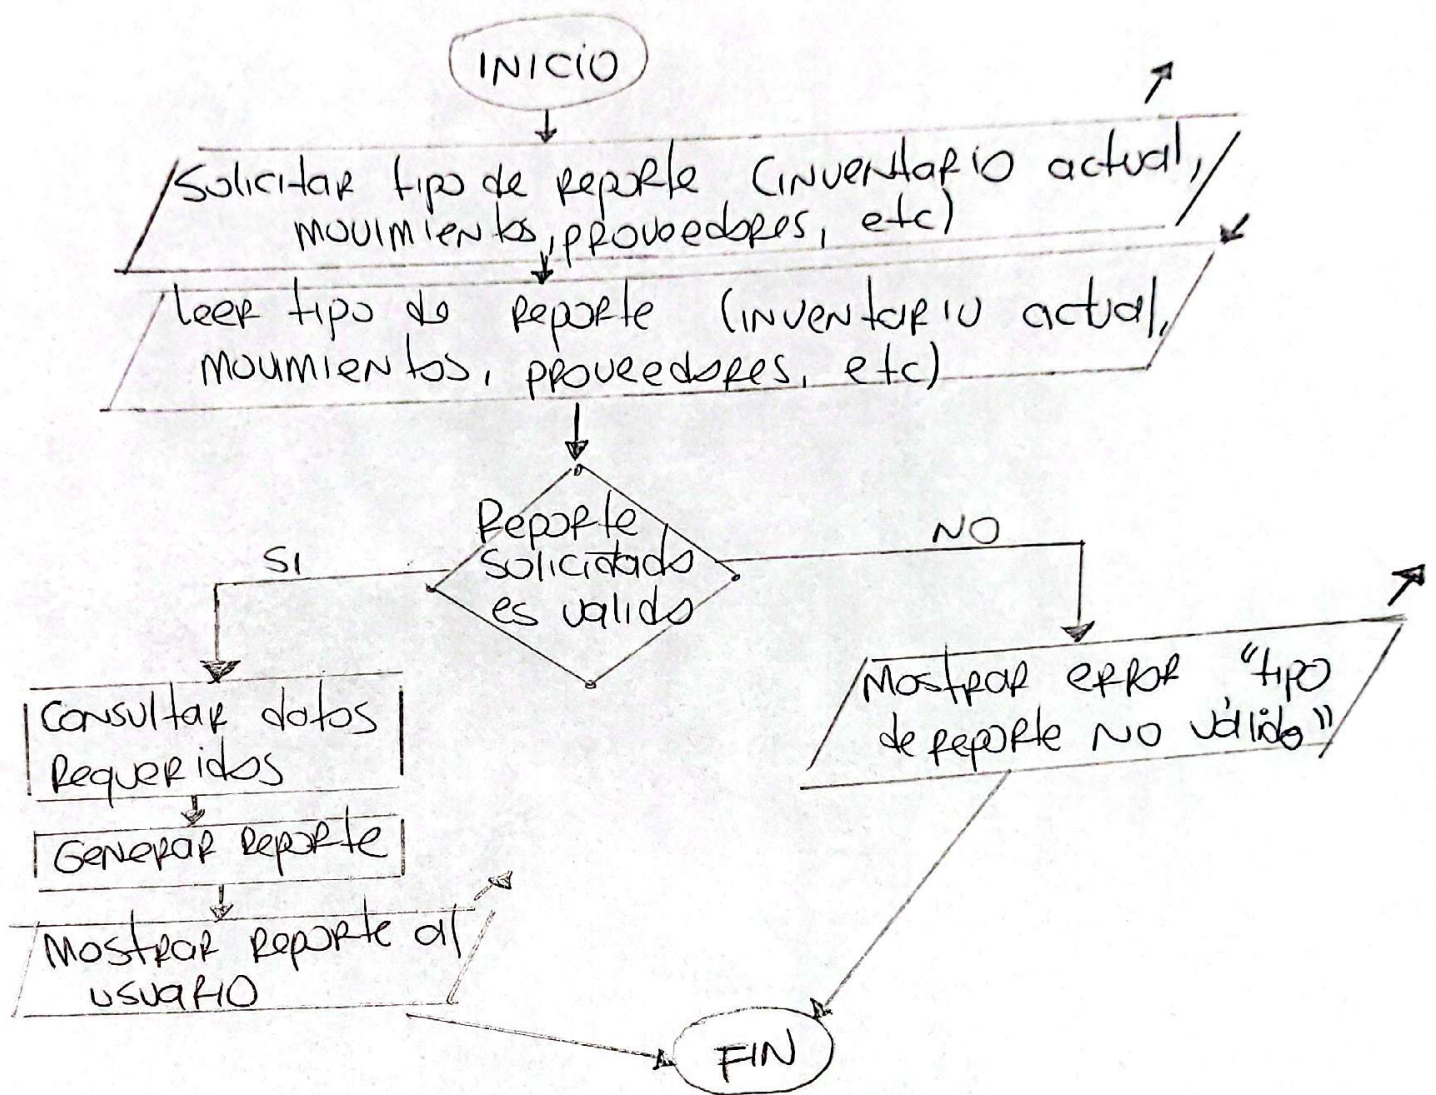 INICIO
Solicitar tipo de reporte (inventario actual,
movimientos, proveedores, etc)
leer tipo de reporte (inventario actual,
movimientos, proveedores, etc)
Reporte
solicitado
es valido
SI
NO
Consultar datos
Requeridos
Mostrar error "tipo
de reporte NO válido"
Generar Reporte
Mostrar reporte al
usuario
FIN